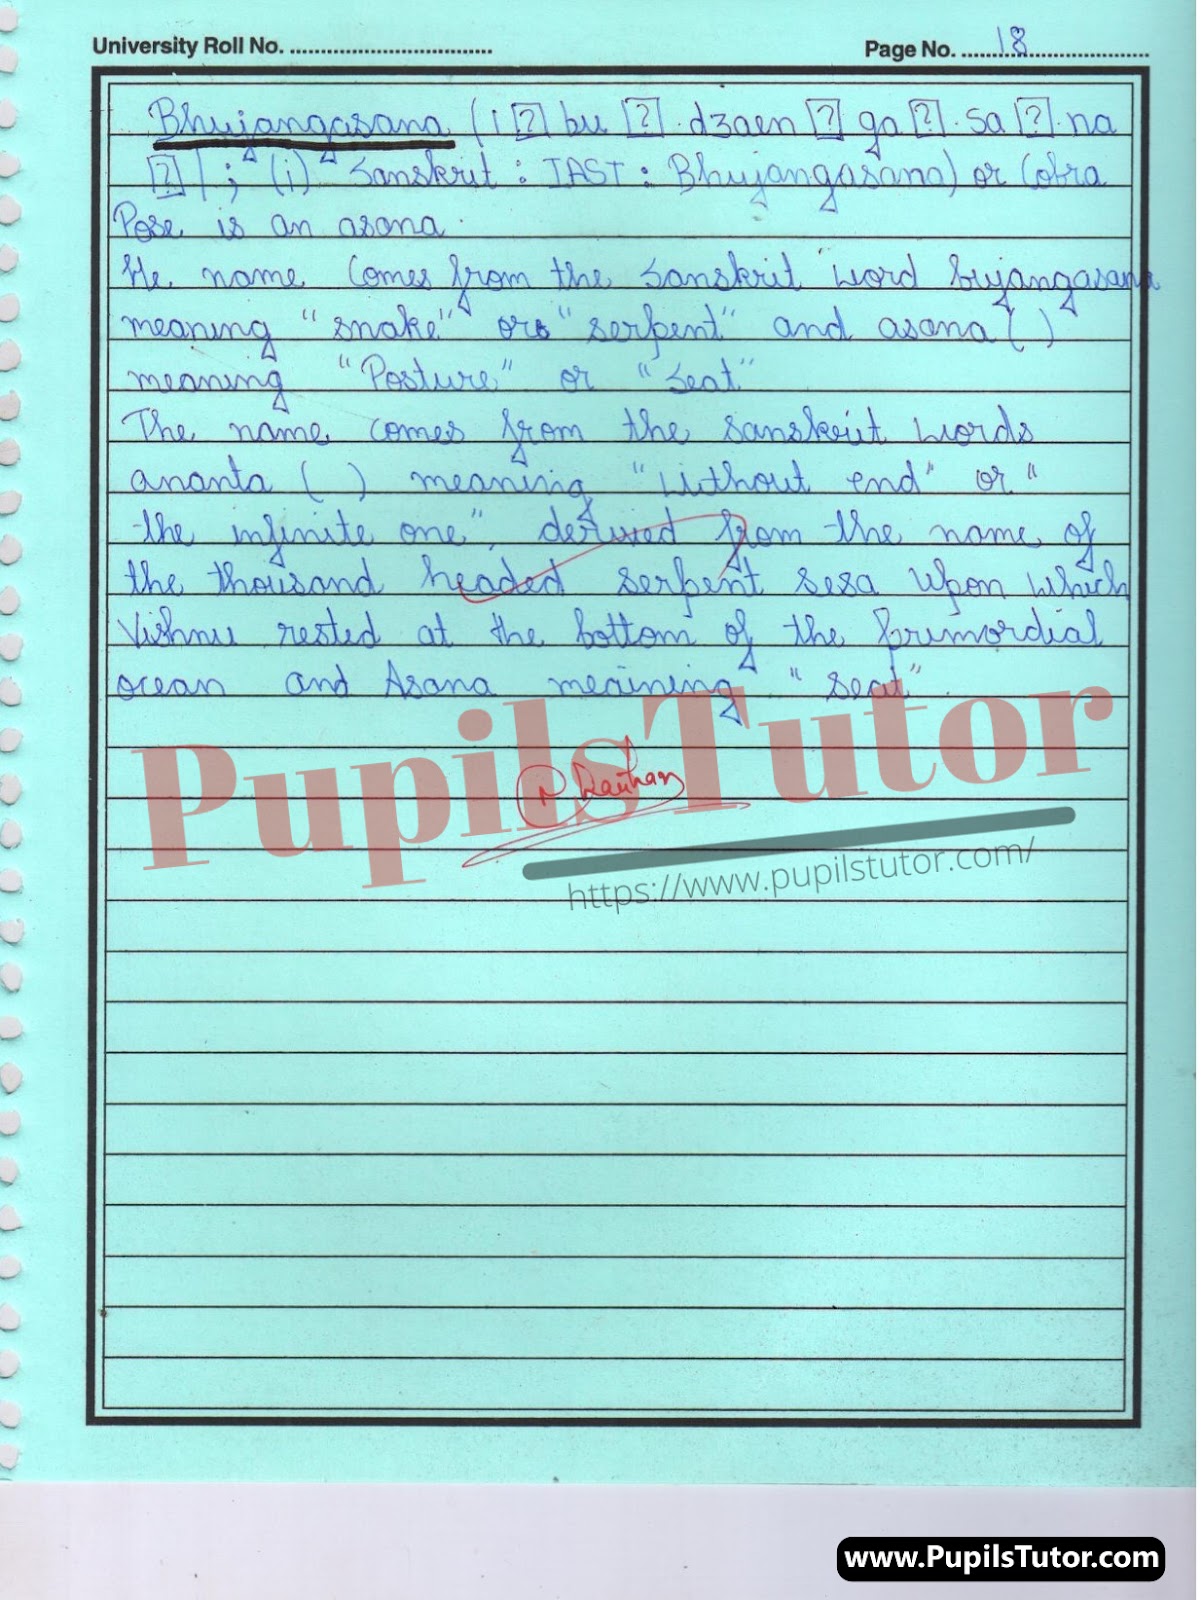 University Roll No. ................................ Page No. ......18....................
Bhujangasana (i ⍰ bu ⍰.dʒaen ⍰ ga ⍰.sa ⍰.na
⍰ | ; (i) Sanskrit : IAST : Bhujangasana) or Cobra
Pose is an asana.
He name comes from the Sanskrit word bujangasana
meaning "snake" or "serpent" and asana ( )
meaning "Posture" or "Seat"
The name comes from the sanskrit words
ananta ( ) meaning "without end" or "
the infinite one", derived from the name of
the thousand headed serpent sesa upon which
Vishnu rested at the bottom of the primordial
ocean and Asana meaning "seat".
PupilsTutor
https://www.pupilstutor.com/
www.PupilsTutor.com